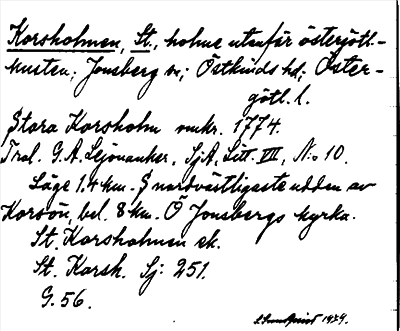 Korsholmen, St., holme utanför östgötl.-
kusten; Jonsberg sn; Östkinds hd; Öster-
götl. l.
Stora Korsholm mskr. 1774.
Trol. G.A. Lejonanker, SjA, Litt. VII, N:o 10.
Läge 1.4 km. S nordvästligaste udden av
Korsön, bel. 8 km. Ö Jonsbergs kyrka.
St. Korsholmen ek.
St. Korsh. Sj: 251.
G. 56.
1934.